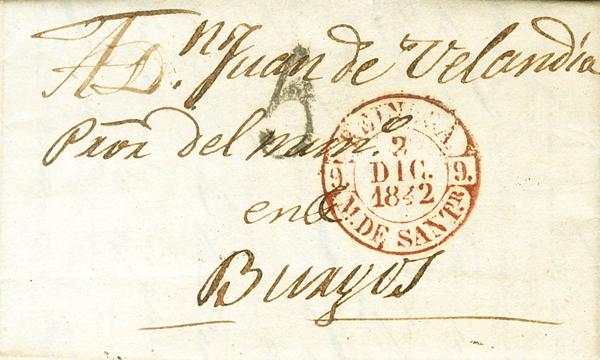 A D.n Juan de Velandia
5
Pror del num.o
REINOSA
2
DIC.
1842
9. 9.
M. DE SANT.R
en
Burgos